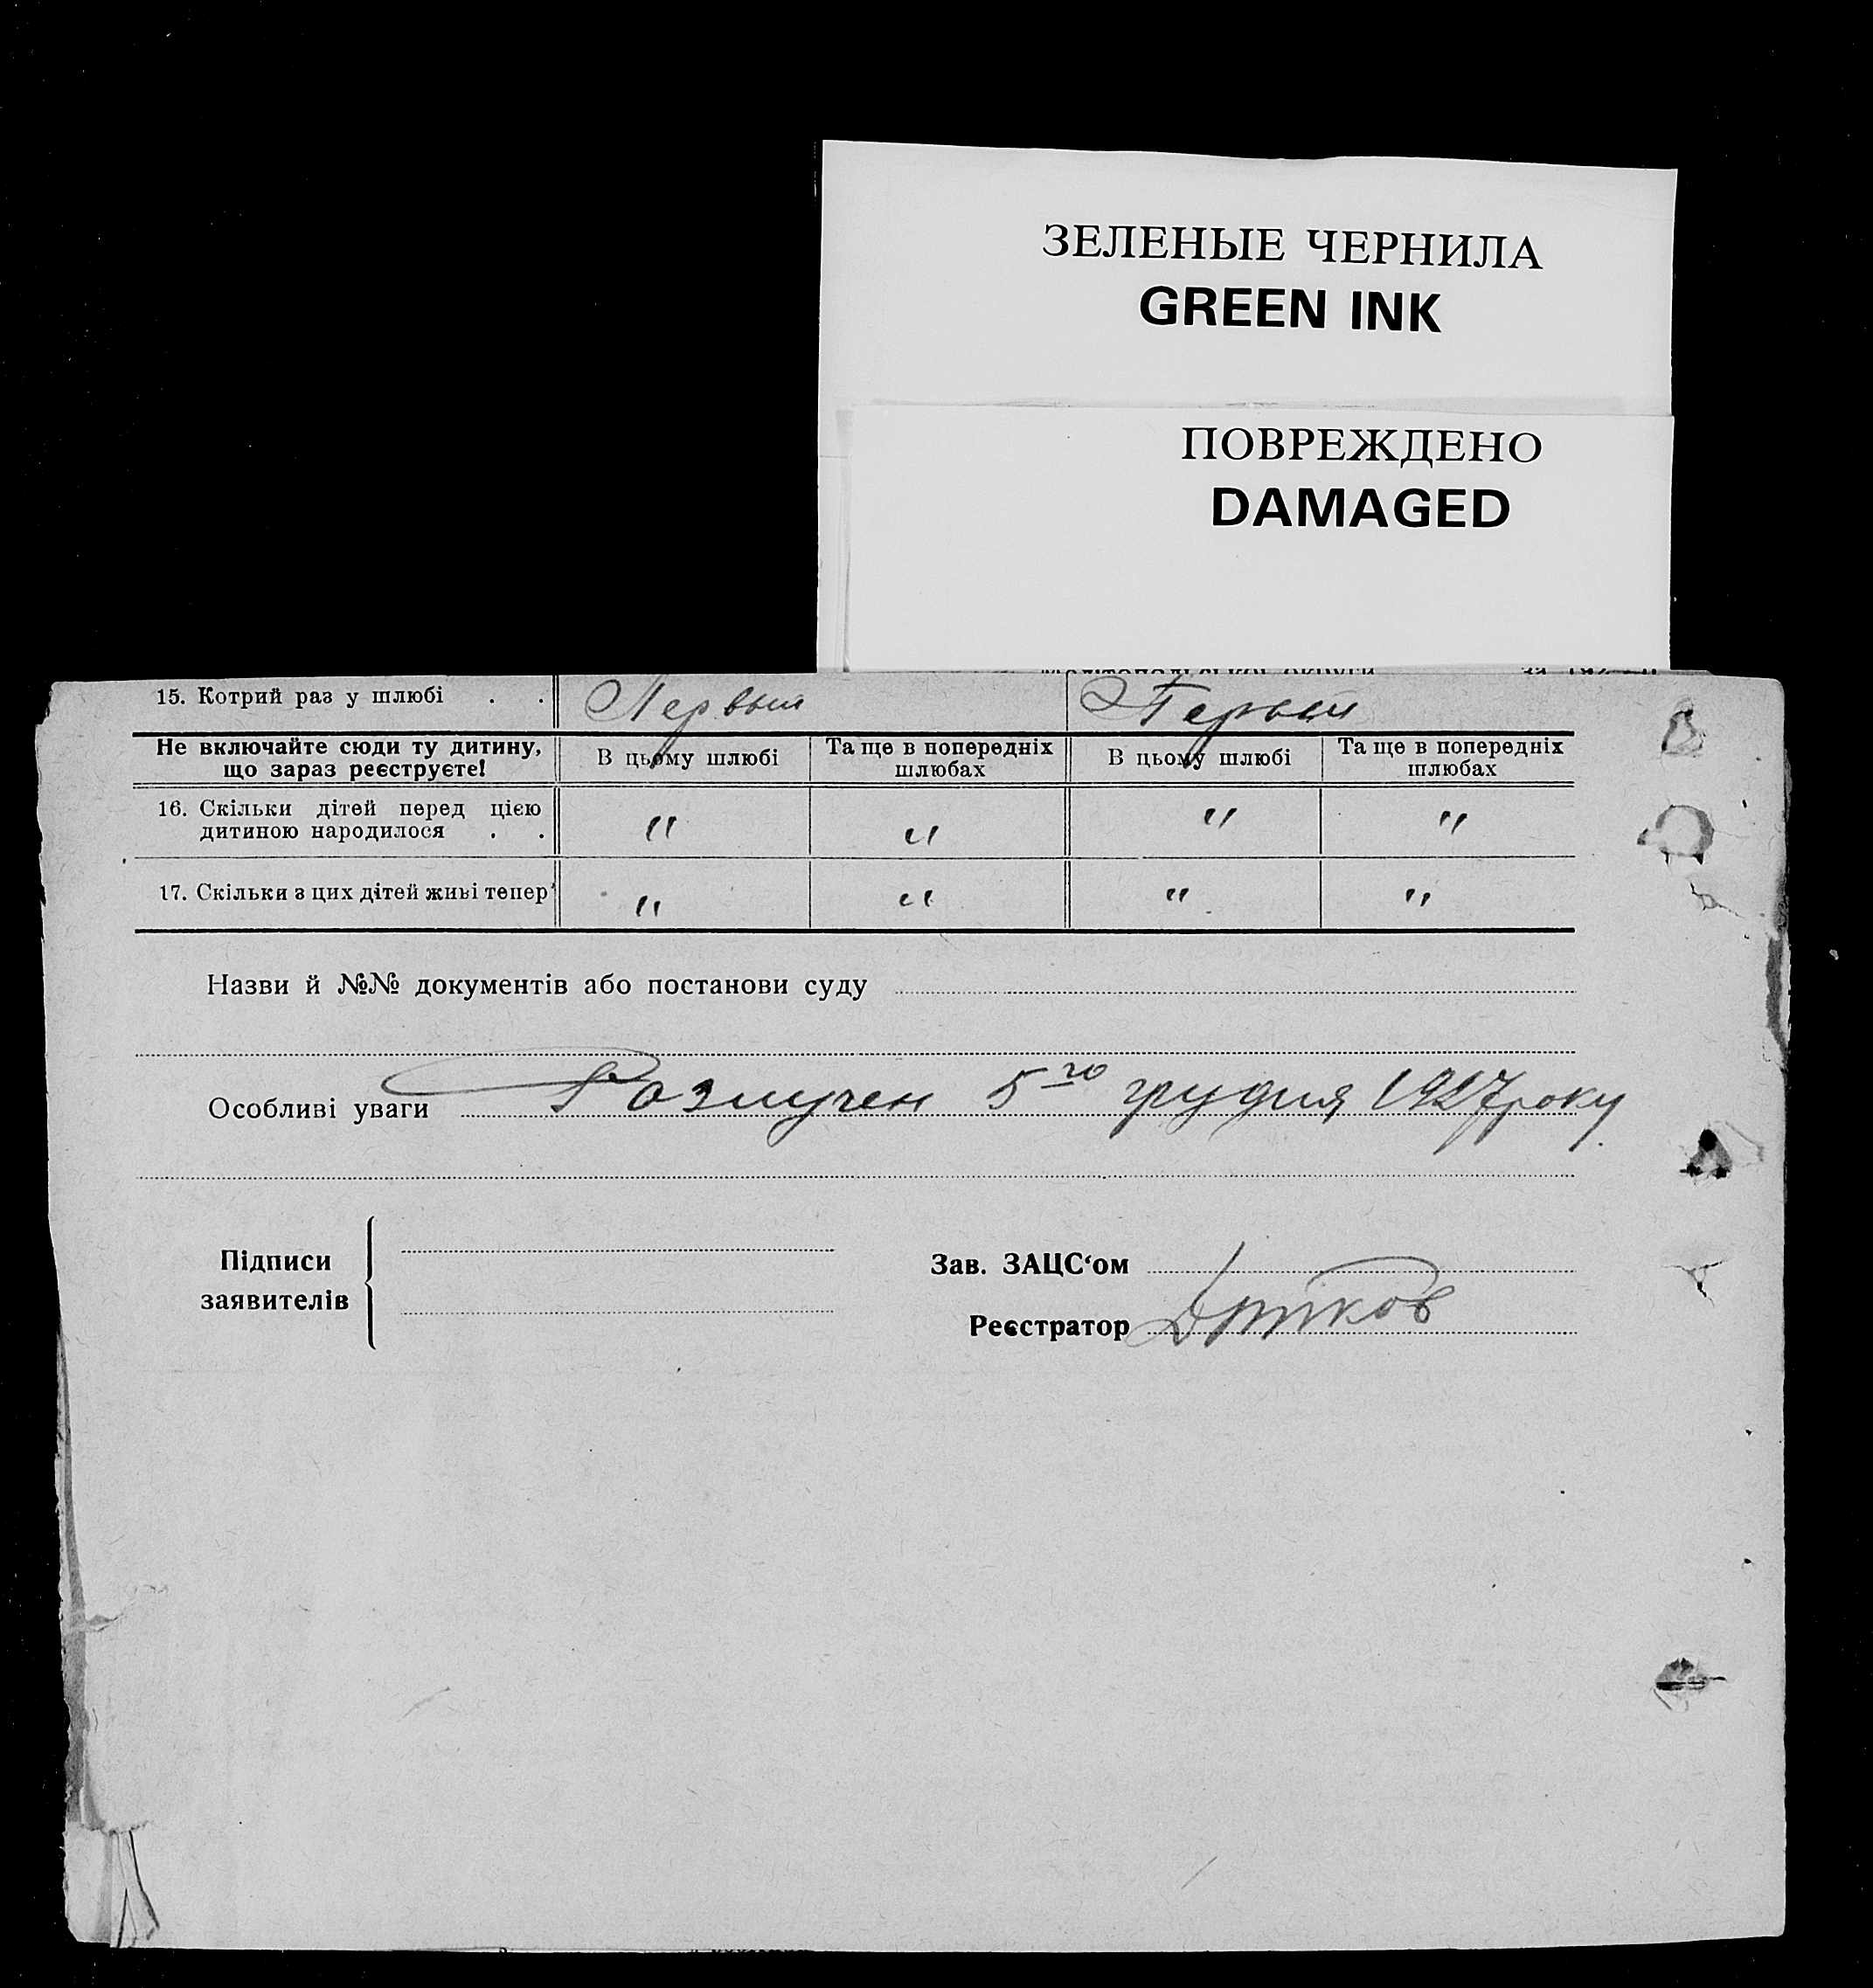 ЗЕЛЕНЫЕ ЧЕРНИЛА
GREEN INK
ПОВРЕЖДЕНО
DAMAGED
15. Котрий раз у шлюбі . . Первый Первый
Не включайте сюди ту дитину, що зараз реєструєте! В цьому шлюбі Та ще в попередніх шлюбах В цьому шлюбі Та ще в попередніх шлюбах
16. Скільки дітей перед цією
дитиною народилося . . " " " "
17. Скільки з цих дітей живі тепер " " " "
Назви й №№ документів або постанови суду
Особливі уваги Розлучен 5го грудня 1927 року
Підписи
заявителів
Зав. ЗАЦС‘ом
Реєстратор